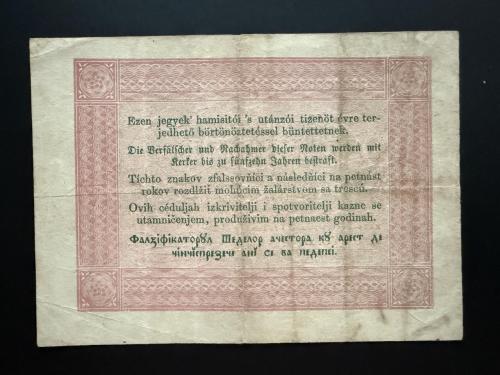 Ezen jegyek' hamisitói 's utánzói tizenöt évre ter-
jedhető börtönöztetéssel büntettetnek.
Die Verfälscher und Nachahmer dieser Noten werden mit
Kerker bis zu fünfzehn Jahren bestraft.
Tíchto znakov zfalšovňíci a následňíci na petnást
rokov rozdlžiť mohúcim žalárstvom sa trescú.
Ovih céduljah izkrivitelji i spotvoritelji kazne se
utamničenjem, produživim na petnaest godinah.
Фалзіфікаторꙋл Шеделор ачестора кꙋ арест де
чінчіспрезече ані се ва педепсі.